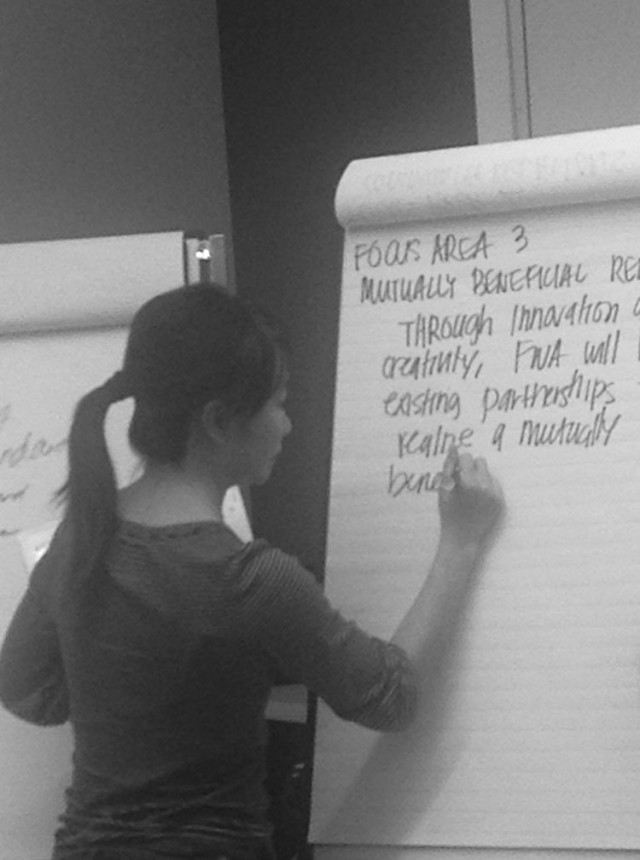 FOCUS AREA 3
MUTUALLY BENEFICIAL RE
THROUGH Innovation
creativity, FWA will
existing partnerships
realize a mutually
bene